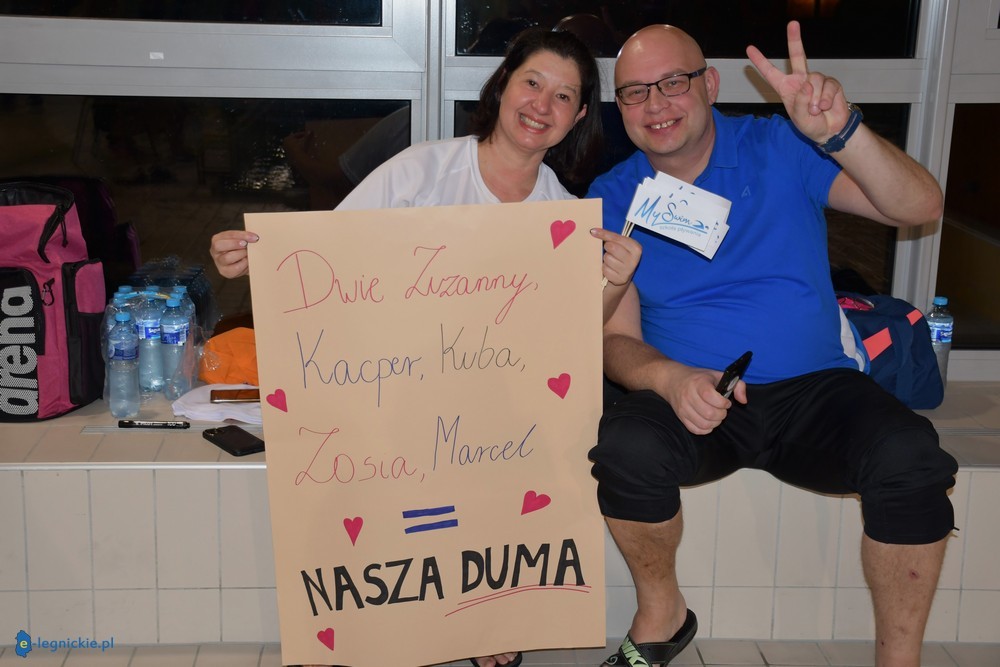 Dwie Zuzanny,
Kacper, Kuba,
Zosia, Marcel
=
NASZA DUMA
My Swim
arena
e-legnickie.pl